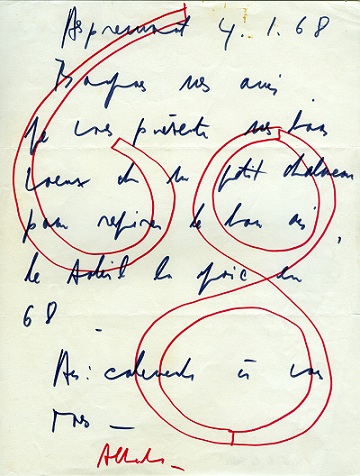 Aspremont 4.1.68
nos amis
je vous présente mes bons
voeux du petit chateau
pour respirer le bon air,
le soleil la joie en
68 _
Amicalement à vous
tous _